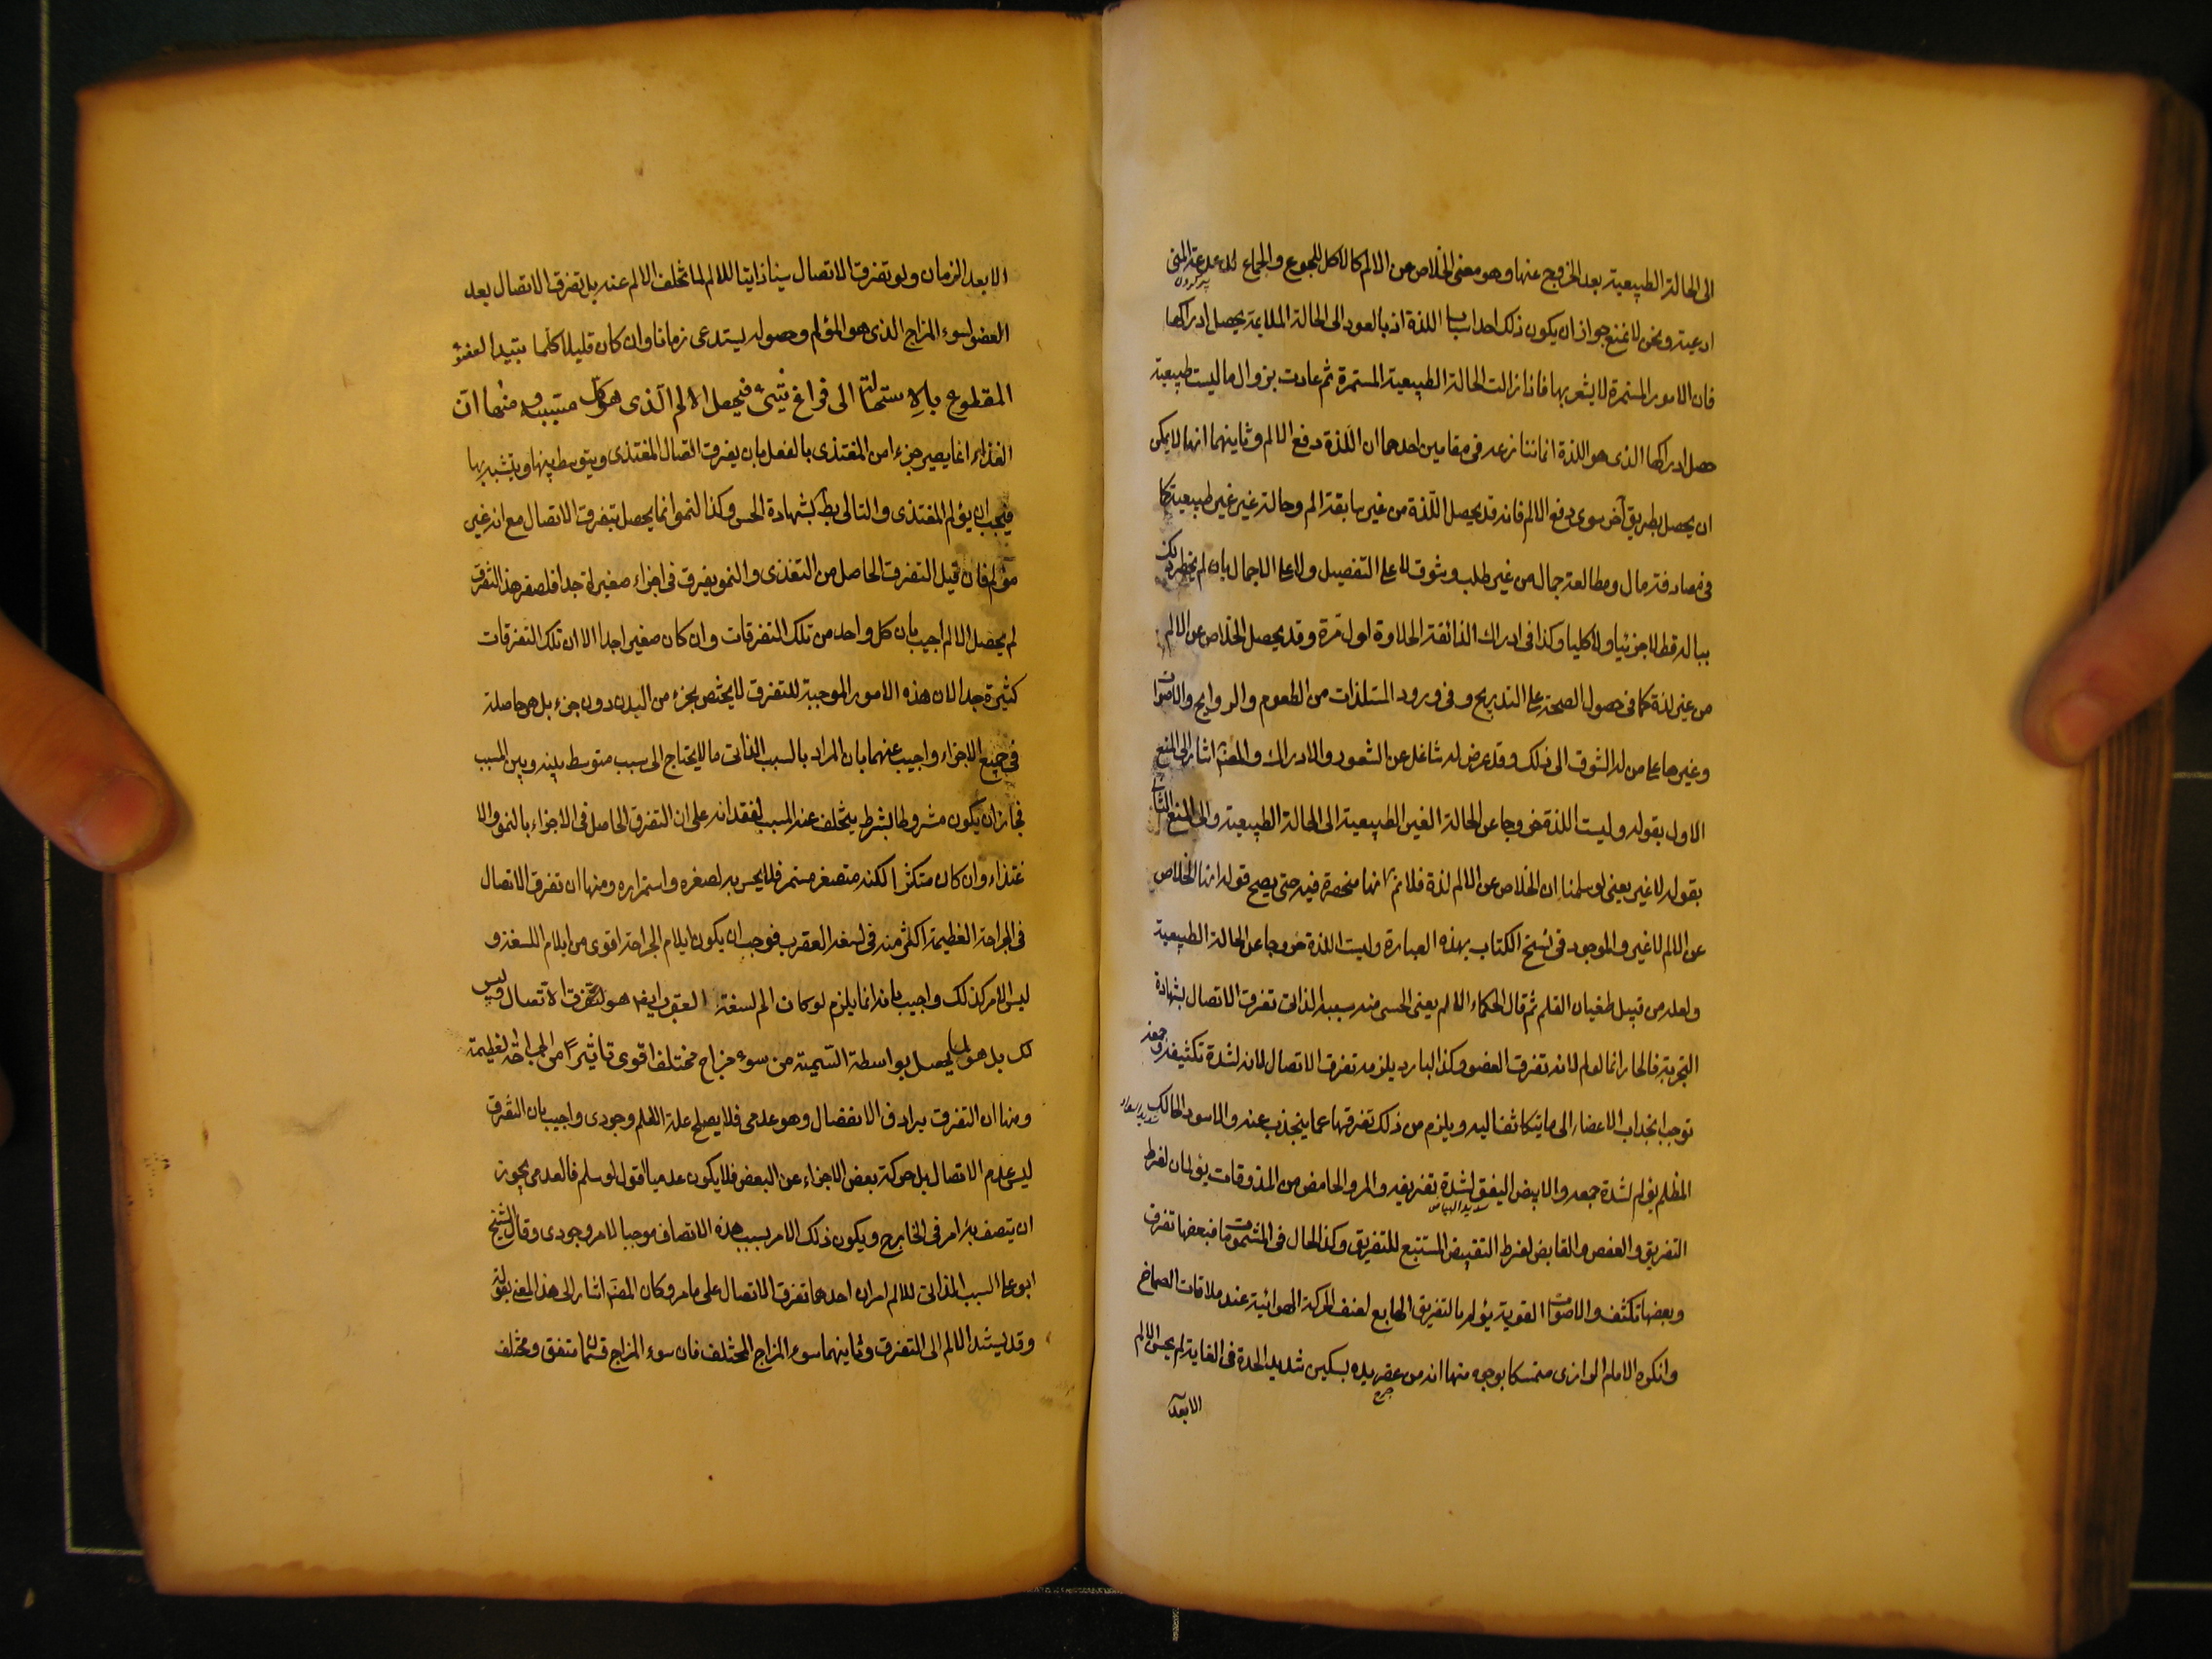 الى الحالة الطبيعية بعد الخروج عنها وهو معنى الخلاص عن الالم كالاكل للجوع والجماع لدغدغة المنى
ادعيته ونحن لا نمنع جواز ان يكون ذلك احد اسباب اللذة اذ بالعود الى الحالة الملايمة يحصل ادراكها
فان الامور المستمرة لا يشعر بها فاذا زالت الحالة الطبيعية المستمرة ثم عادت بزوال ما ليست طبيعية
حصل ادراكها الذى هو اللذة انما ننازعه فى مقامين احدهما ان اللذة دفع الالم وثانيهما انها لا يمكن
ان يحصل بطريق آخر سوى دفع الالم فانه قد يحصل اللذة من غير سابقة الم وحالة غير غير طبيعية كما
فى مصادفة مال ومطالعة جمال من غير طلب وشوق لا على التفصيل ولا على الاجمال بان لم يخطر ذلك
بباله قط لا جزئيا ولا كليا وكذا فى ادراك الذائقة الحلاوة اول مرة وقد يحصل الخلاص عن الالم
من غير لذة كما فى حصول الصحة على التدريج وفى ورود المستلذات من الطعوم والروايح والاصوات
وغيرها على من له الشوق الى ذلك وقد عرض له شاغل عن الشعور والادراك والمصنف اشار الى المنع
الاول بقوله وليست اللذة خروجا عن الحالة الغير الطبيعية الى الحالة الطبيعية والى المنع الثانى
بقوله لا غير يعنى لو سلمنا ان الخلاص عن الالم لذة فلا نم انها منحصرة فيه حتى يصح قوله انها الخلاص
عن الالم لا غير والموجود فى نسخ الكتاب بهذه العبارة وليست اللذة خروجا عن الحالة الطبيعية
ولعله من قبيل طغيان القلم ثم قال الحكماء الالم يعنى الحسى منه سببه الذاتى تفرق الاتصال بشهادة
التجربة فالحار انما يولم لانه تفرق العضو وكذا البارد يلزمه تفرق الاتصال لانه لشدة تكثيفه وجمعه
توجب انجذاب الاعضاء الى ما يتكاثف اليه ويلزم من ذلك تفرقها عما ينجذب عنه والاسود الحالك
المظلم يؤلم لشدة جمعه والابيض اليقق لشدة تفريقه والمر والحامض من المذوقات يؤلمان لفرط
شديد البياض
التفريق والعفص والقابض لفرط التقبيض المستتبع للتفريق وكذا الحال فى المشمومات فبعضها تفرق
وبعضها تكثف والاصوات القوية يؤلم بالتفريق التابع لعنف الحركة الهوائية عند ملاقات الصماخ
وانكره الامام الرازى متمسكا بوجوه منها انه من عقر يده بسكين شديد الحدة فى الغاية لم يحس الالم
جرح
الا بعد
الا بعد الزمان ولو تفرق الاتصال سببا ذاتيا للالم لما تخلف الالم عنه بل تفرق الاتصال يعد
العضو لسوء المزاج الذى هو المؤلم وحصوله يستدعى زمانا وان كان قليلا كلما يبتدأ العضو
المقطوع بالاستحالة الى فراغ شئ فيحصل الالم الذى هو مسببه ومنها ان
الغذاء انما يصير جزءا من المغتذى بالفعل بان يفرق اتصال المغتذى ويتوسط بينها ويتشبه بها
فيجب ان يؤلم المغتذى والتالى بط بشهادة الحس وكذا النمو انما يحصل بتفرق الاتصال مع انه غير
مؤلم فان قيل التفرق الحاصل من التغذى والنمو يفرق فى اجزاء صغيرة جدا فلصغر هذا التفرق
لم يحصل الالم اجيب بان كل واحد من تلك التفرقات وان كان صغيرا جدا الا ان تلك التفرقات
كثيرة جدا لان هذه الامور الموجبة للتفرق لا يختص بجزء من البدن دون جزء بل هى حاصلة
فى جميع الاجزاء واجيب عنهما بان المراد بالسبب الذاتى ما لا يحتاج الى سبب متوسط بينه وبين المسبب
فجاز ان يكون مشروطا بشرط يتخلف عنه المسبب لفقدانه على ان التفرق الحاصل فى الاجزاء بالنمو والا
غتذاء وان كان متكثرا لكنه متصغر مستمر فلا يحس به لصغره واستمراره ومنها ان تفرق الاتصال
فى الجراحة العظيمة اكثر منه فى لسعة العقرب فوجب ان يكون ايلام الجراحة اقوى من ايلام اللسعة و
ليس الامر كذلك واجيب بانه انما يلزم لو كان الم لسعة العقرب ايضا هو لتفرق الاتصال وليس
لك بل هو لما يحصل بواسطة السمية من سوء مزاج مختلف اقوى تاثيرا من الجراحة العظيمة
ومنها ان التفرق يرادف الانفصال وهو عدمى فلا يصلح علة الالم وجودى واجيب بان التفرق
ليس عدم الاتصال بل حركة بعض الاجزاء عن البعض فلا يكون عدميا اقول لو سلم فالعدمى يجوز
ان يتصف به امر فى الخارج ويكون ذلك الامر بسبب هذه الاتصاف موجبا لامر وجودى وقال الشيخ
ابو على السبب الذاتى للالم امران احدهما تفرق الاتصال على ما مر وكان المصنف اشار الى هذا المعنى بقوله
وقد يستند الالم الى التفرق وثانيهما سوء المزاج المختلف فان سوء المزاج قسمان متفق ومختلف